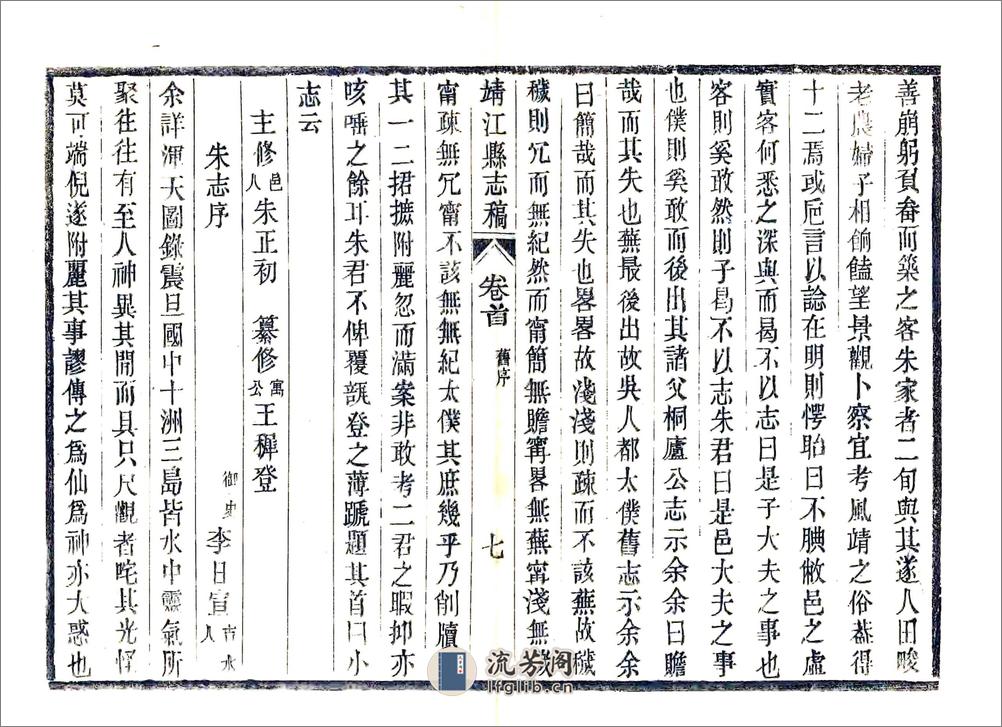 善崩躬負畚而築之客朱家者二旬與其遂人田畯
老農婦子相餉饁望景觀卜察宜考風靖之俗葢得
十二焉或卮言以諗在明則愕眙曰不腆敝邑之虛
實客何悉之深與而曷不以志曰是子大夫之事也
客則奚敢然則子曷不以志朱君曰是邑大夫之事
也僕則奚敢而後出其諸父桐廬公志示余余曰贍
哉而其失也蕪最後出故吳人都太僕舊志示余余
曰簡哉而其失也畧畧故淺淺則疎而不該蕪故穢
穢則冗而無紀然而甯簡無贍甯畧無蕪甯淺無穢
靖江縣志稿 卷首 舊序 七
甯疎無冗甯不該無無紀太僕其庶幾乎乃削牘
其一二捃摭附麗忽而滿案非敢考二君之暇抑亦
咳唾之餘耳朱君不俾覆瓿登之薄蹏題其首曰小
志云
主修邑人朱正初 纂修寓公王穉登
朱志序 御史李日宣吉水人
余詳渾天圖錄震旦國中十洲三島皆水中靈氣所
聚往往有至人神異其間而具只尺觀者咤其光怪
莫可端倪遂附麗其事謬傳之為仙為神亦大惑也
流芳阁
lfglib.cn